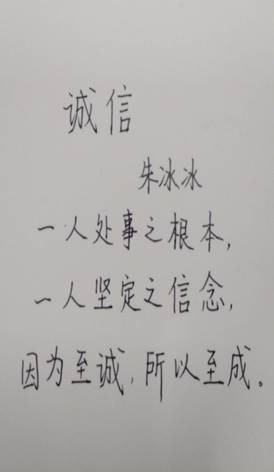 诚信
朱冰冰
一人处事之根本,
一人坚定之信念,
因为至诚,所以至成。